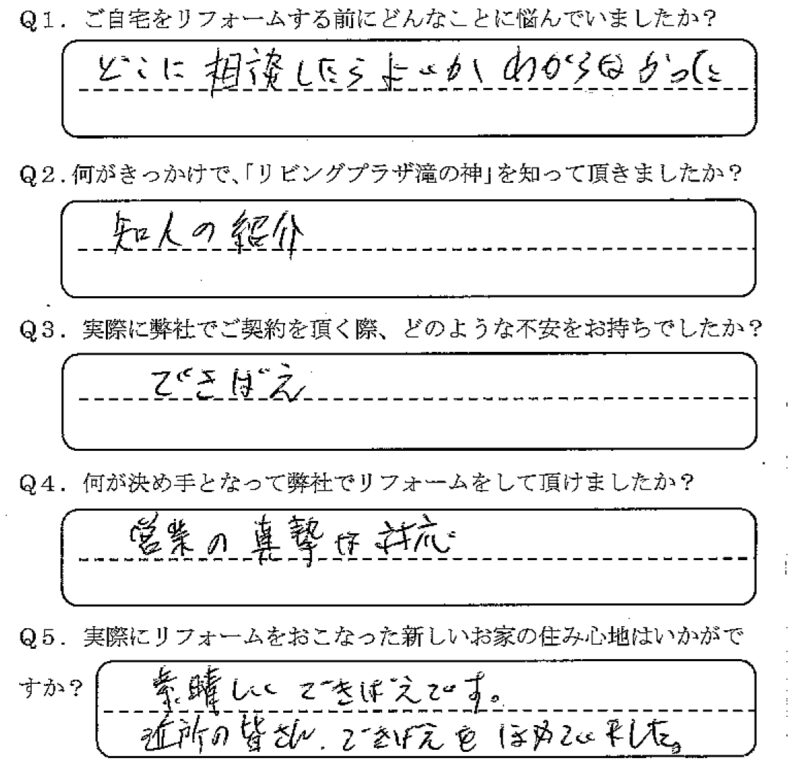 Q1. ご自宅をリフォームする前にどんなことに悩んでいましたか？
どこに相談したらよいか わからなかった
Q2.何がきっかけで、「リビングプラザ滝の神」を知って頂きましたか？
知人の紹介
Q3. 実際に弊社でご契約を頂く際、どのような不安をお持ちでしたか？
できばえ
Q4. 何が決め手となって弊社でリフォームをして頂けましたか？
営業の真摯な対応
Q5. 実際にリフォームをおこなった新しいお家の住み心地はいかがで
すか？
素晴しい できばえです。
近所の皆さん、できばえを ほめていました。